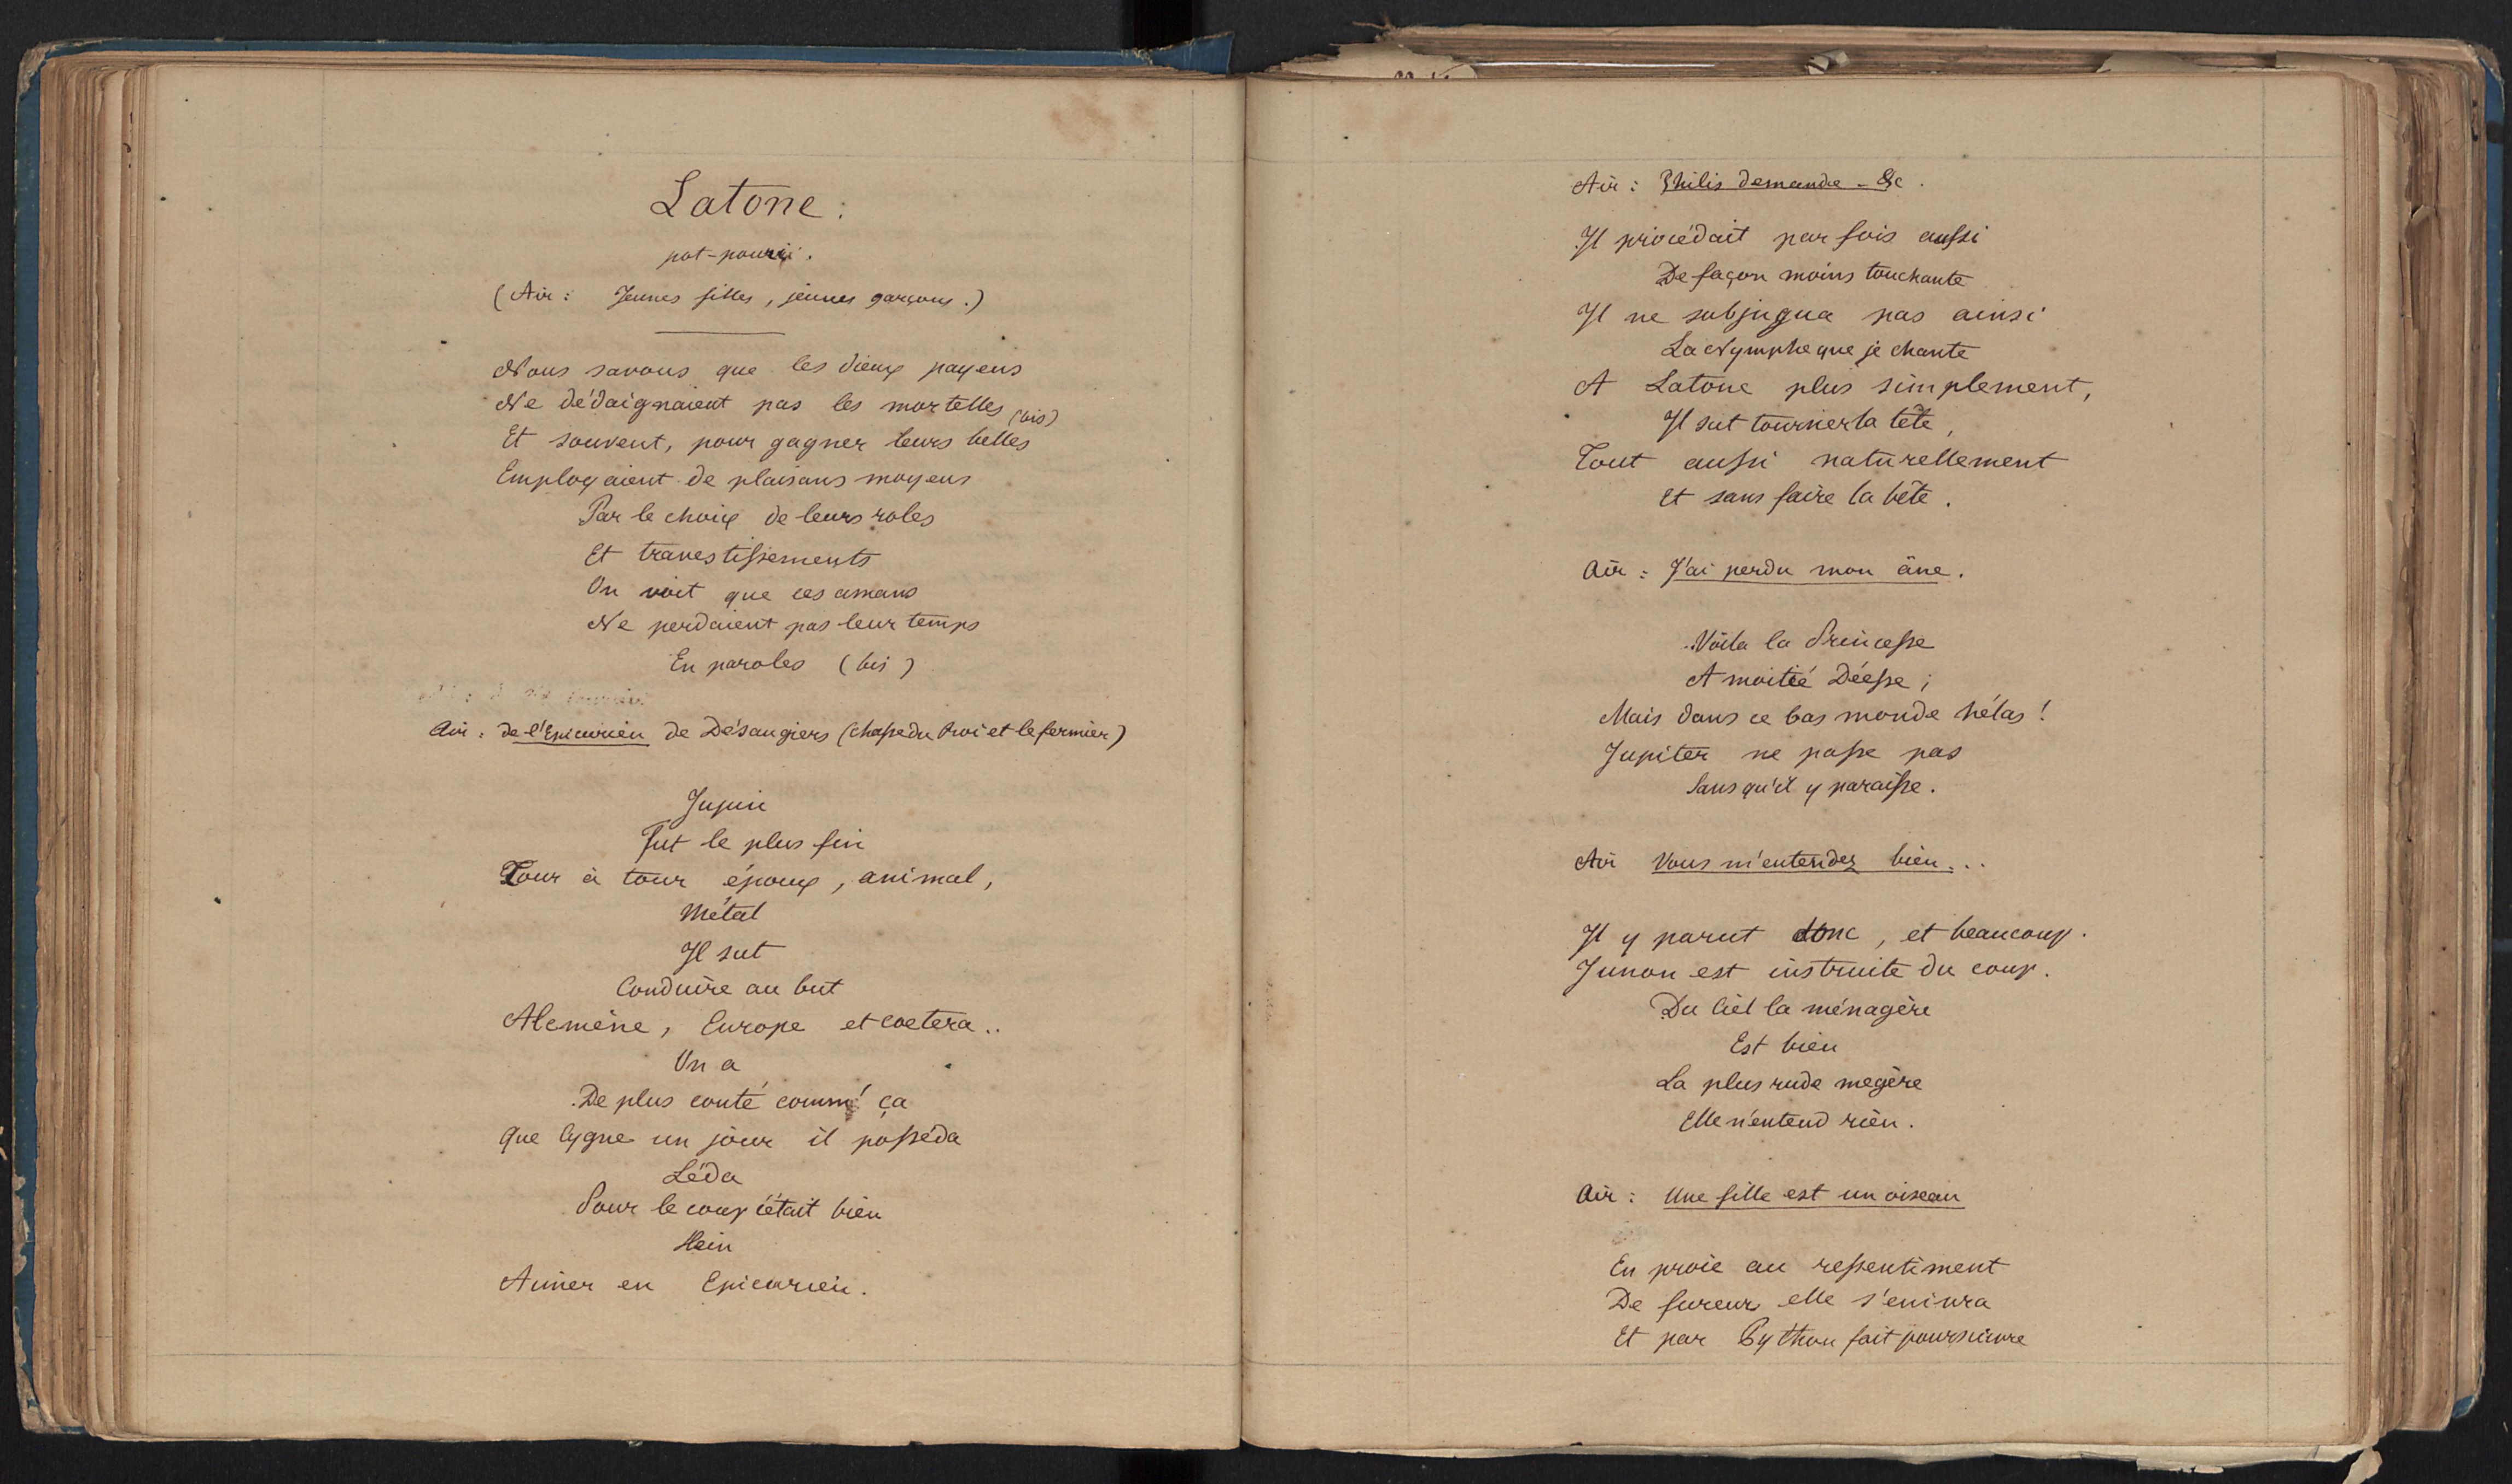 Latone :
pot-pourri.
(Air : Jeunes filles, jeunes garçons.)
Nous savons que les dieux payens
Ne dédaignaient pas les mortelles (bis)
Et souvent, pour gagner leurs belles
Employaient de plaisans moyens
Par le choix de leurs roles
Et travestissements
On voit que ces amans
Ne perdaient pas leur temps
En paroles (bis)
Air : de l'Epicurien de Désaugiers (Chasse du Roi et le fermier)
Jupin
Fut le plus fin
Tour à tour époux, animal,
Métal
Il sut
Conduire au but
Alcmène, Europe et coetera..
On a
De plus conté comm' ça
Que Cygne un jour il posséda
Léda
Pour le coup c'était bien
Hein
Aimer en Epicurien.
Air : Philis demande - &c.
Il procédait parfois aussi
De façon moins touchante
Il ne subjugua pas ainsi
La Nymphe que je chante
A Latone plus simplement,
Il sut tourner la tête,
Tout aussi naturellement
Et sans faire la bête.
Air : J'ai perdu mon âne.
Voila la Princesse
A moitié Déesse ;
Mais dans ce bas monde hélas !
Jupiter ne passe pas
Sans qu'il y paraisse.
Air Vous m'entendez bien...
Il y parut donc, et beaucoup.
Junon est instruite du coup.
Du Ciel la ménagère
Est bien
La plus rude megère
Elle n'entend rien.
Air : Une fille est un oiseau
En proie au ressentiment
De fureur elle s'enivra
Et par Python fait poursuivre